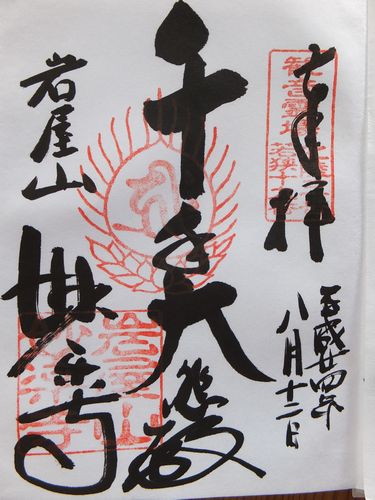 奉拝
平成廿四年
八月十二日
千手大悲殿
岩屋山
妙楽寺